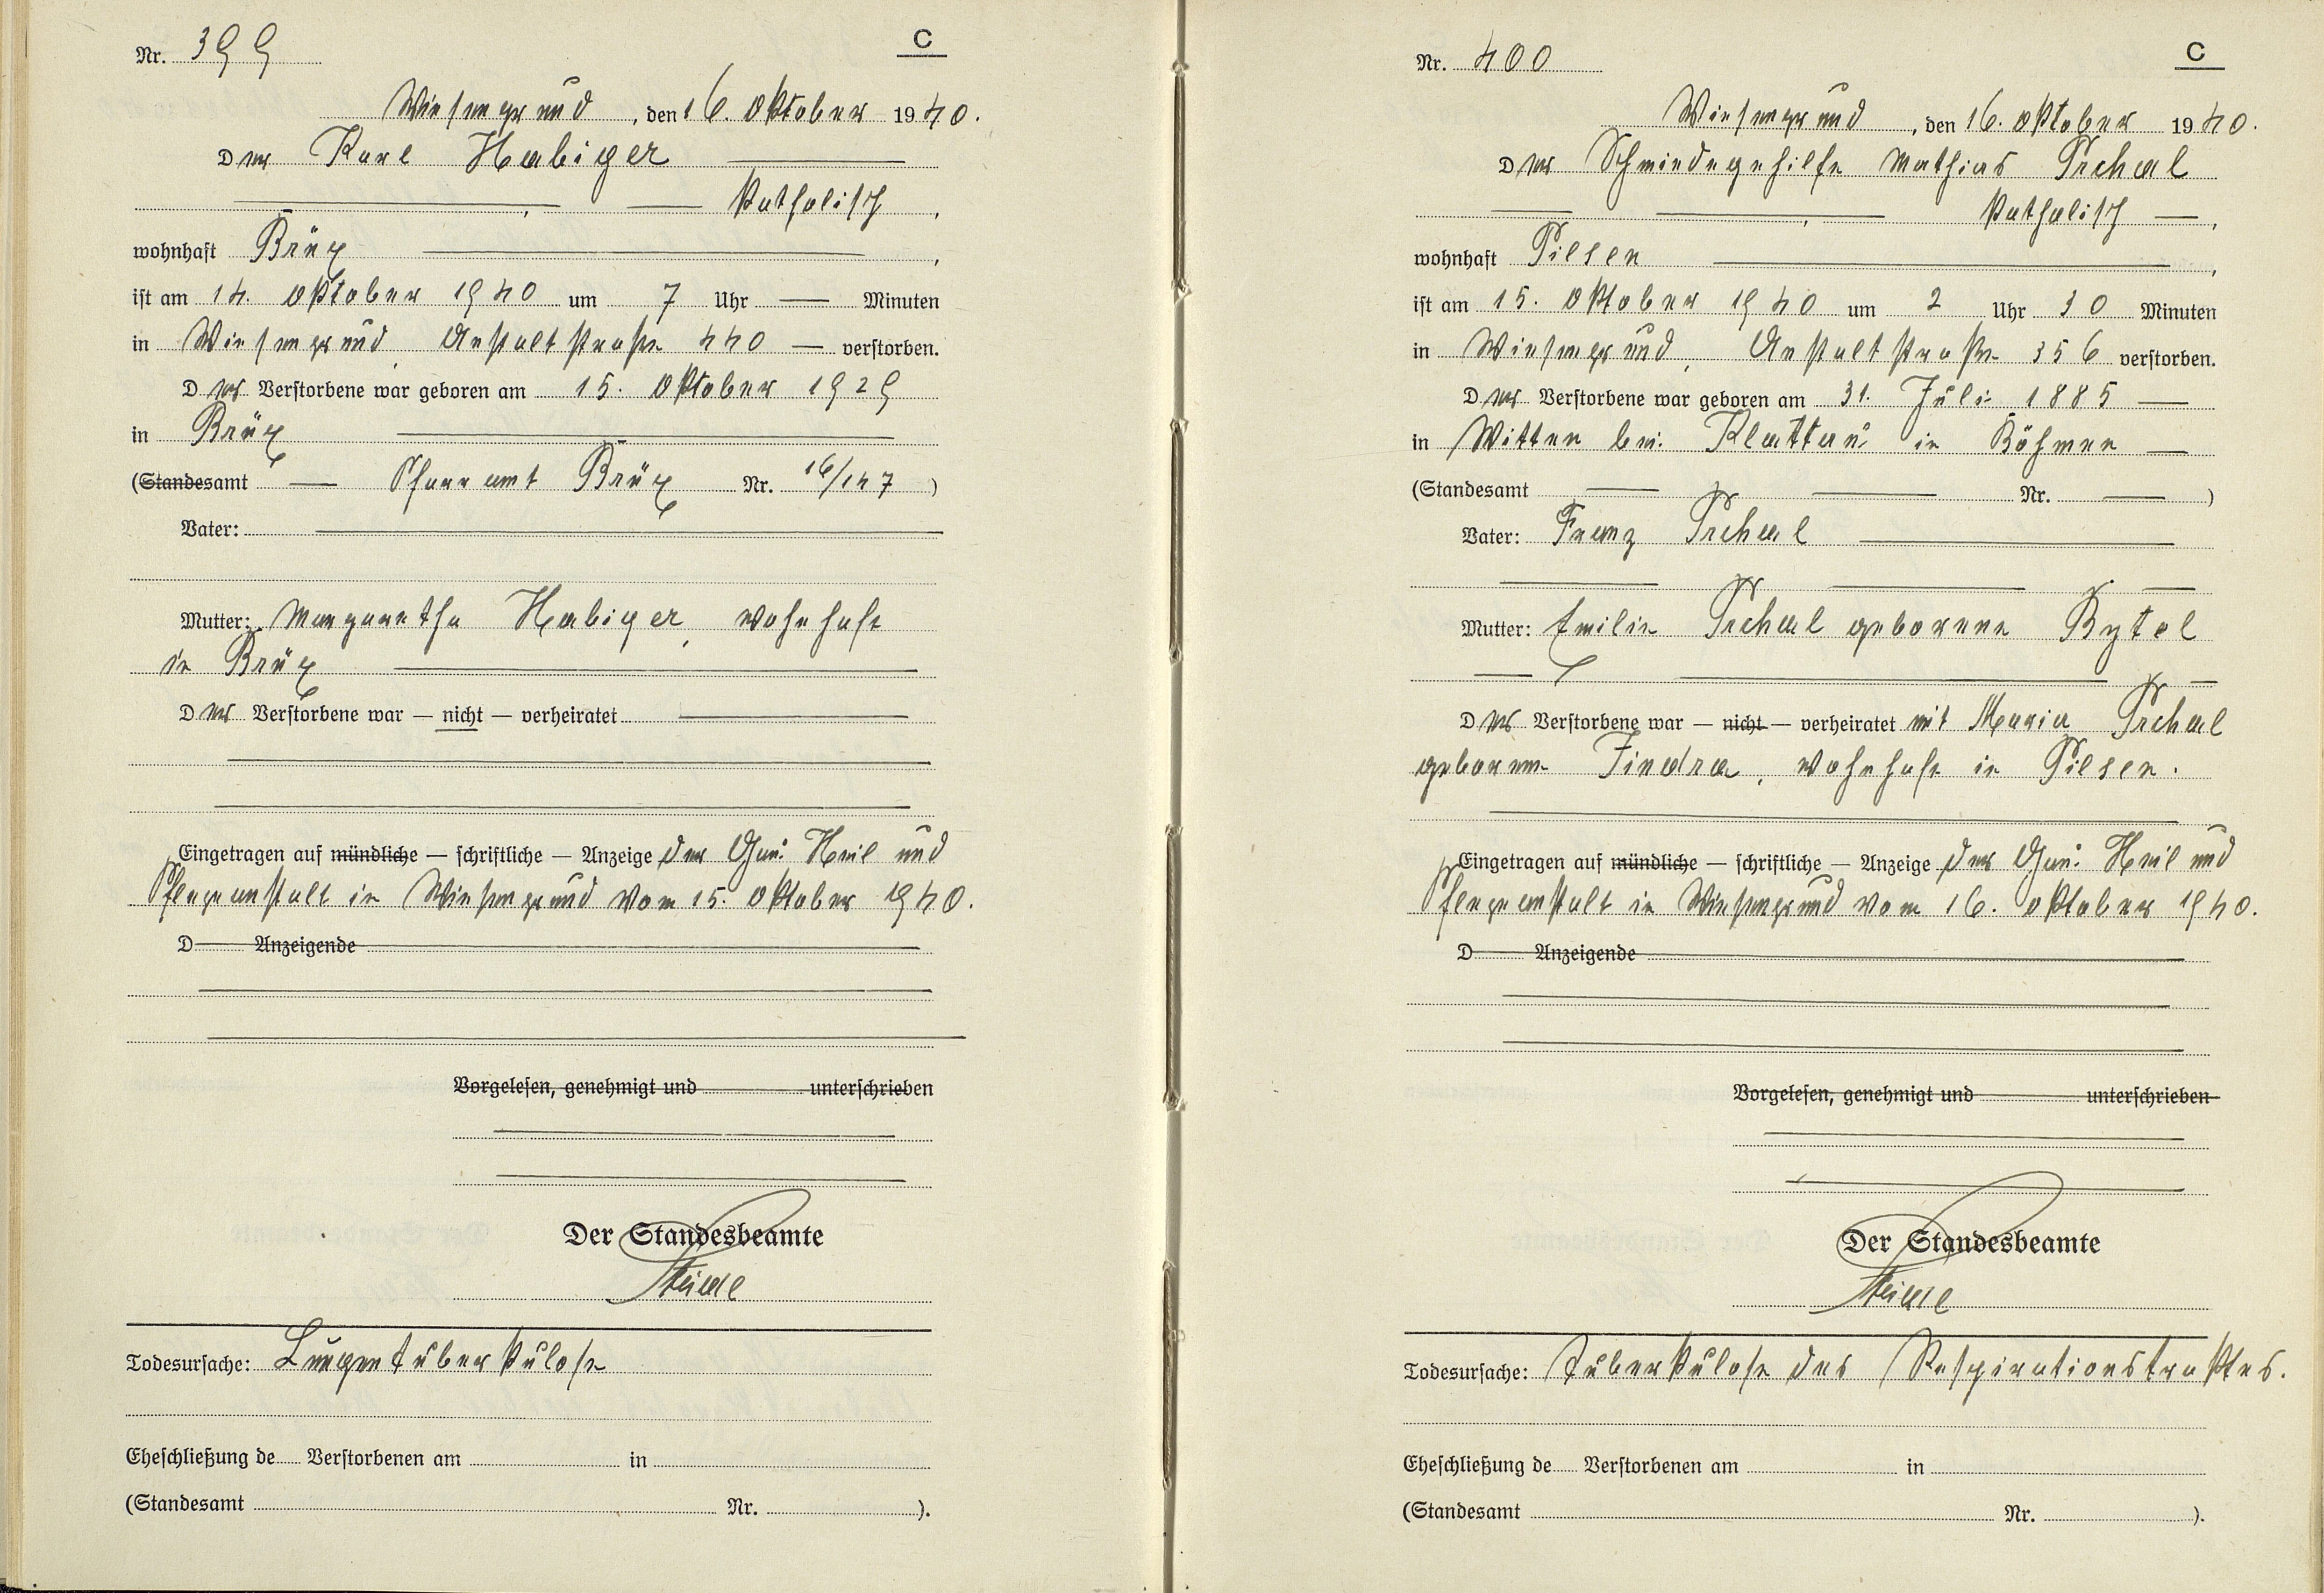 Nr. 399
C
Wiesengrund, den 16. Oktober 1940.
Der Karl Habiger
katholisch,
wohnhaft Brüx,
ist am 14. Oktober 1940 um 7 Uhr — Minuten
in Wiesengrund, Anstaltstraße 440 — verstorben.
Der Verstorbene war geboren am 15. Oktober 1929
in Brüx
(Standesamt — Pfarramt Brüx Nr. 16/147)
Vater:
Mutter: Margaretha Habiger, wohnhaft
in Brüx
Der Verstorbene war — nicht — verheiratet
Eingetragen auf mündliche — schriftliche — Anzeige der Gau. Heil und
Pflegeanstalt in Wiesengrund vom 15. Oktober 1940.
D Anzeigende
Vorgelesen, genehmigt und unterschrieben
Der Standesbeamte
Todesursache: Lungentuberkulose
Eheschließung de Verstorbenen am in
(Standesamt Nr. ).
Nr. 400
C
Wiesengrund, den 16. Oktober 1940.
Der Schmiedegehilfe Mathias Prchal
katholisch —,
wohnhaft Pilsen,
ist am 15. Oktober 1940 um 2 Uhr 30 Minuten
in Wiesengrund, Anstaltstraße 356 verstorben.
Der Verstorbene war geboren am 31. Juli 1885 —
in Witten bei Klattau in Böhmen —
(Standesamt — Nr. — )
Vater: Franz Prchal
Mutter: Emilie Prchal geborene Rytel
Der Verstorbene war — nicht — verheiratet mit Maria Prchal
geborene Findra, wohnhaft in Pilsen.
Eingetragen auf mündliche — schriftliche — Anzeige der Gau. Heil und
Pflegeanstalt in Wiesengrund vom 16. Oktober 1940.
D Anzeigende
Vorgelesen, genehmigt und unterschrieben
Der Standesbeamte
Todesursache: Tuberkulose des Respirationstraktes.
Eheschließung de Verstorbenen am in
(Standesamt Nr. ).